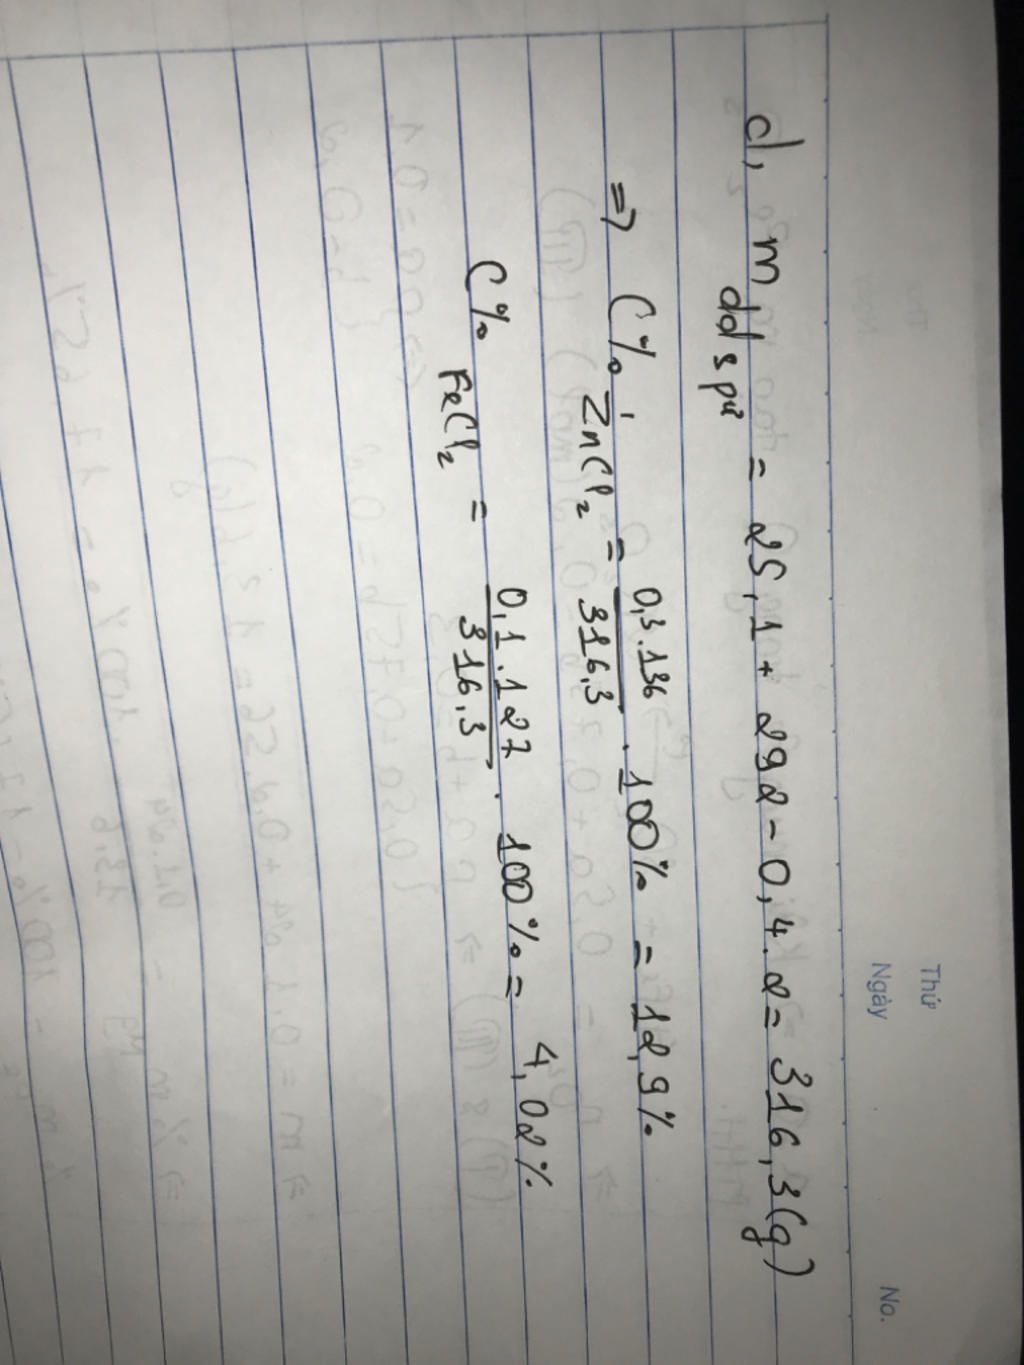 Thứ
Ngày
No.
d, m dd spư = 25,1 + 292 - 0,4.2 = 316,3 (g)
=> C% ZnCl2 = 0,3.136 / 316,3 . 100% = 12,9%
C% FeCl2 = 0,1.127 / 316,3 . 100% = 4,02%